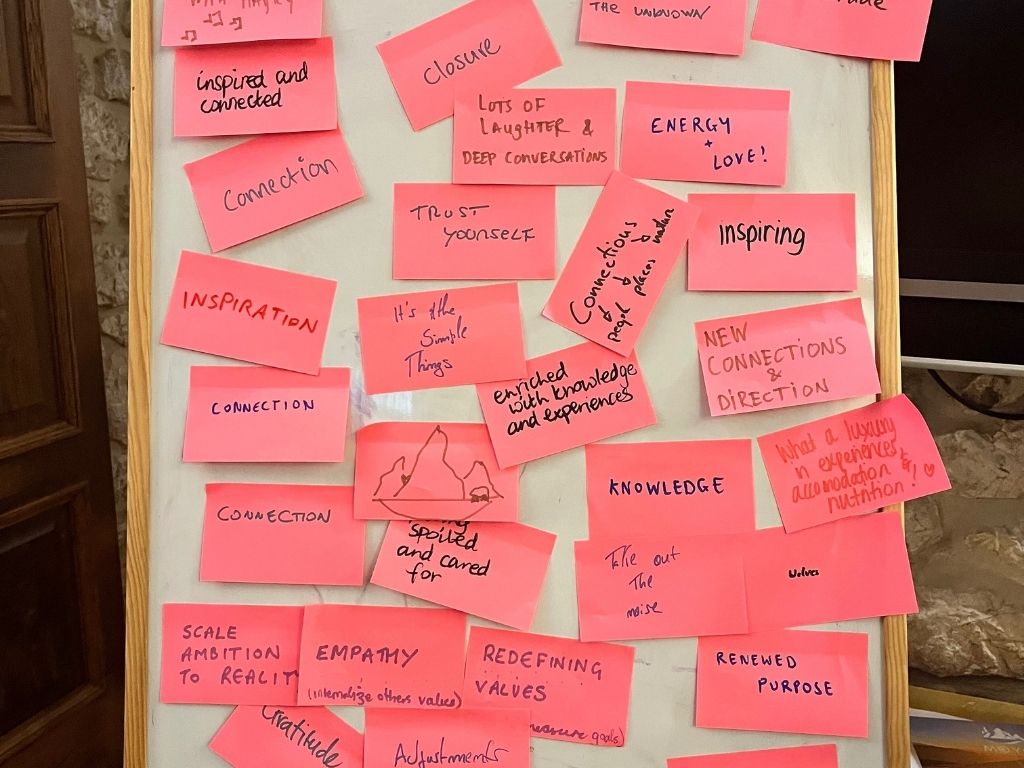 THE UNKNOWN
inspired and
connected
closure
LOTS OF
LAUGHTER &
DEEP CONVERSATIONS
ENERGY
+
LOVE!
Connection
TRUST
YOURSELF
Connections
people
places
nature
Inspiring
INSPIRATION
It's the
Simple
Things
enriched
with knowledge
and experiences
NEW
CONNECTIONS
&
DIRECTION
CONNECTION
KNOWLEDGE
What a luxury
in experiences,
accomodation &
nutrition!
CONNECTION
spoiled
and cared
for
Take out
The
noise
Wolves
SCALE
AMBITION
TO REALITY
EMPATHY
(internalize others values)
REDEFINING
VALUES
goals)
RENEWED
PURPOSE
Gratitude
Adjustments